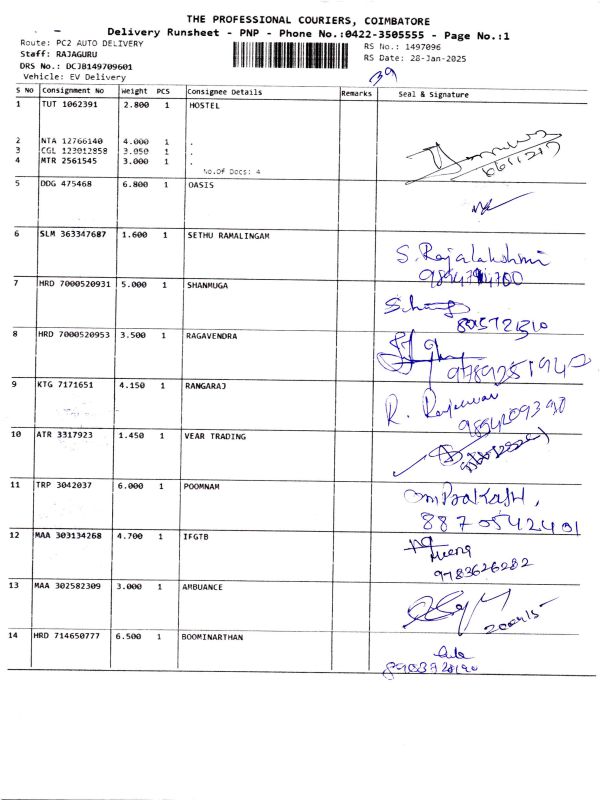 THE PROFESSIONAL COURIERS, COIMBATORE
Delivery Runsheet - PNP - Phone No.:0422-3505555 - Page No.:1
Route: PC2 AUTO DELIVERY RS No.: 1497096
Staff: RAJAGURU RS Date: 28-Jan-2025
DRS No.: DCJB149709601
Vehicle: EV Delivery 39
S No Consignment No Weight PCS Consignee Details Remarks Seal & Signature
1 TUT 1062391 2.800 1 HOSTEL
2 NTA 12766140 4.000 1 .
3 CGL 123012858 3.050 1 .
4 MTR 2561545 3.000 1 .
No.Of Docs: 4
5 DDG 475468 6.800 1 OASIS
6 SLM 363347687 1.600 1 SETHU RAMALINGAM
S. Rajalakshmi
7 HRD 7000520931 5.000 1 SHANMUGA
8 HRD 7000520953 3.500 1 RAGAVENDRA
9 KTG 7171651 4.150 1 RANGARAJ
R.
10 ATR 3317923 1.450 1 VEAR TRADING
11 TRP 3042037 6.000 1 POOMNAM
OmPrakash,
8870542401
12 MAA 303134268 4.700 1 IFGTB
9783626282
13 MAA 302582309 3.000 1 AMBUANCE
14 HRD 714650777 6.500 1 BOOMINARTHAN